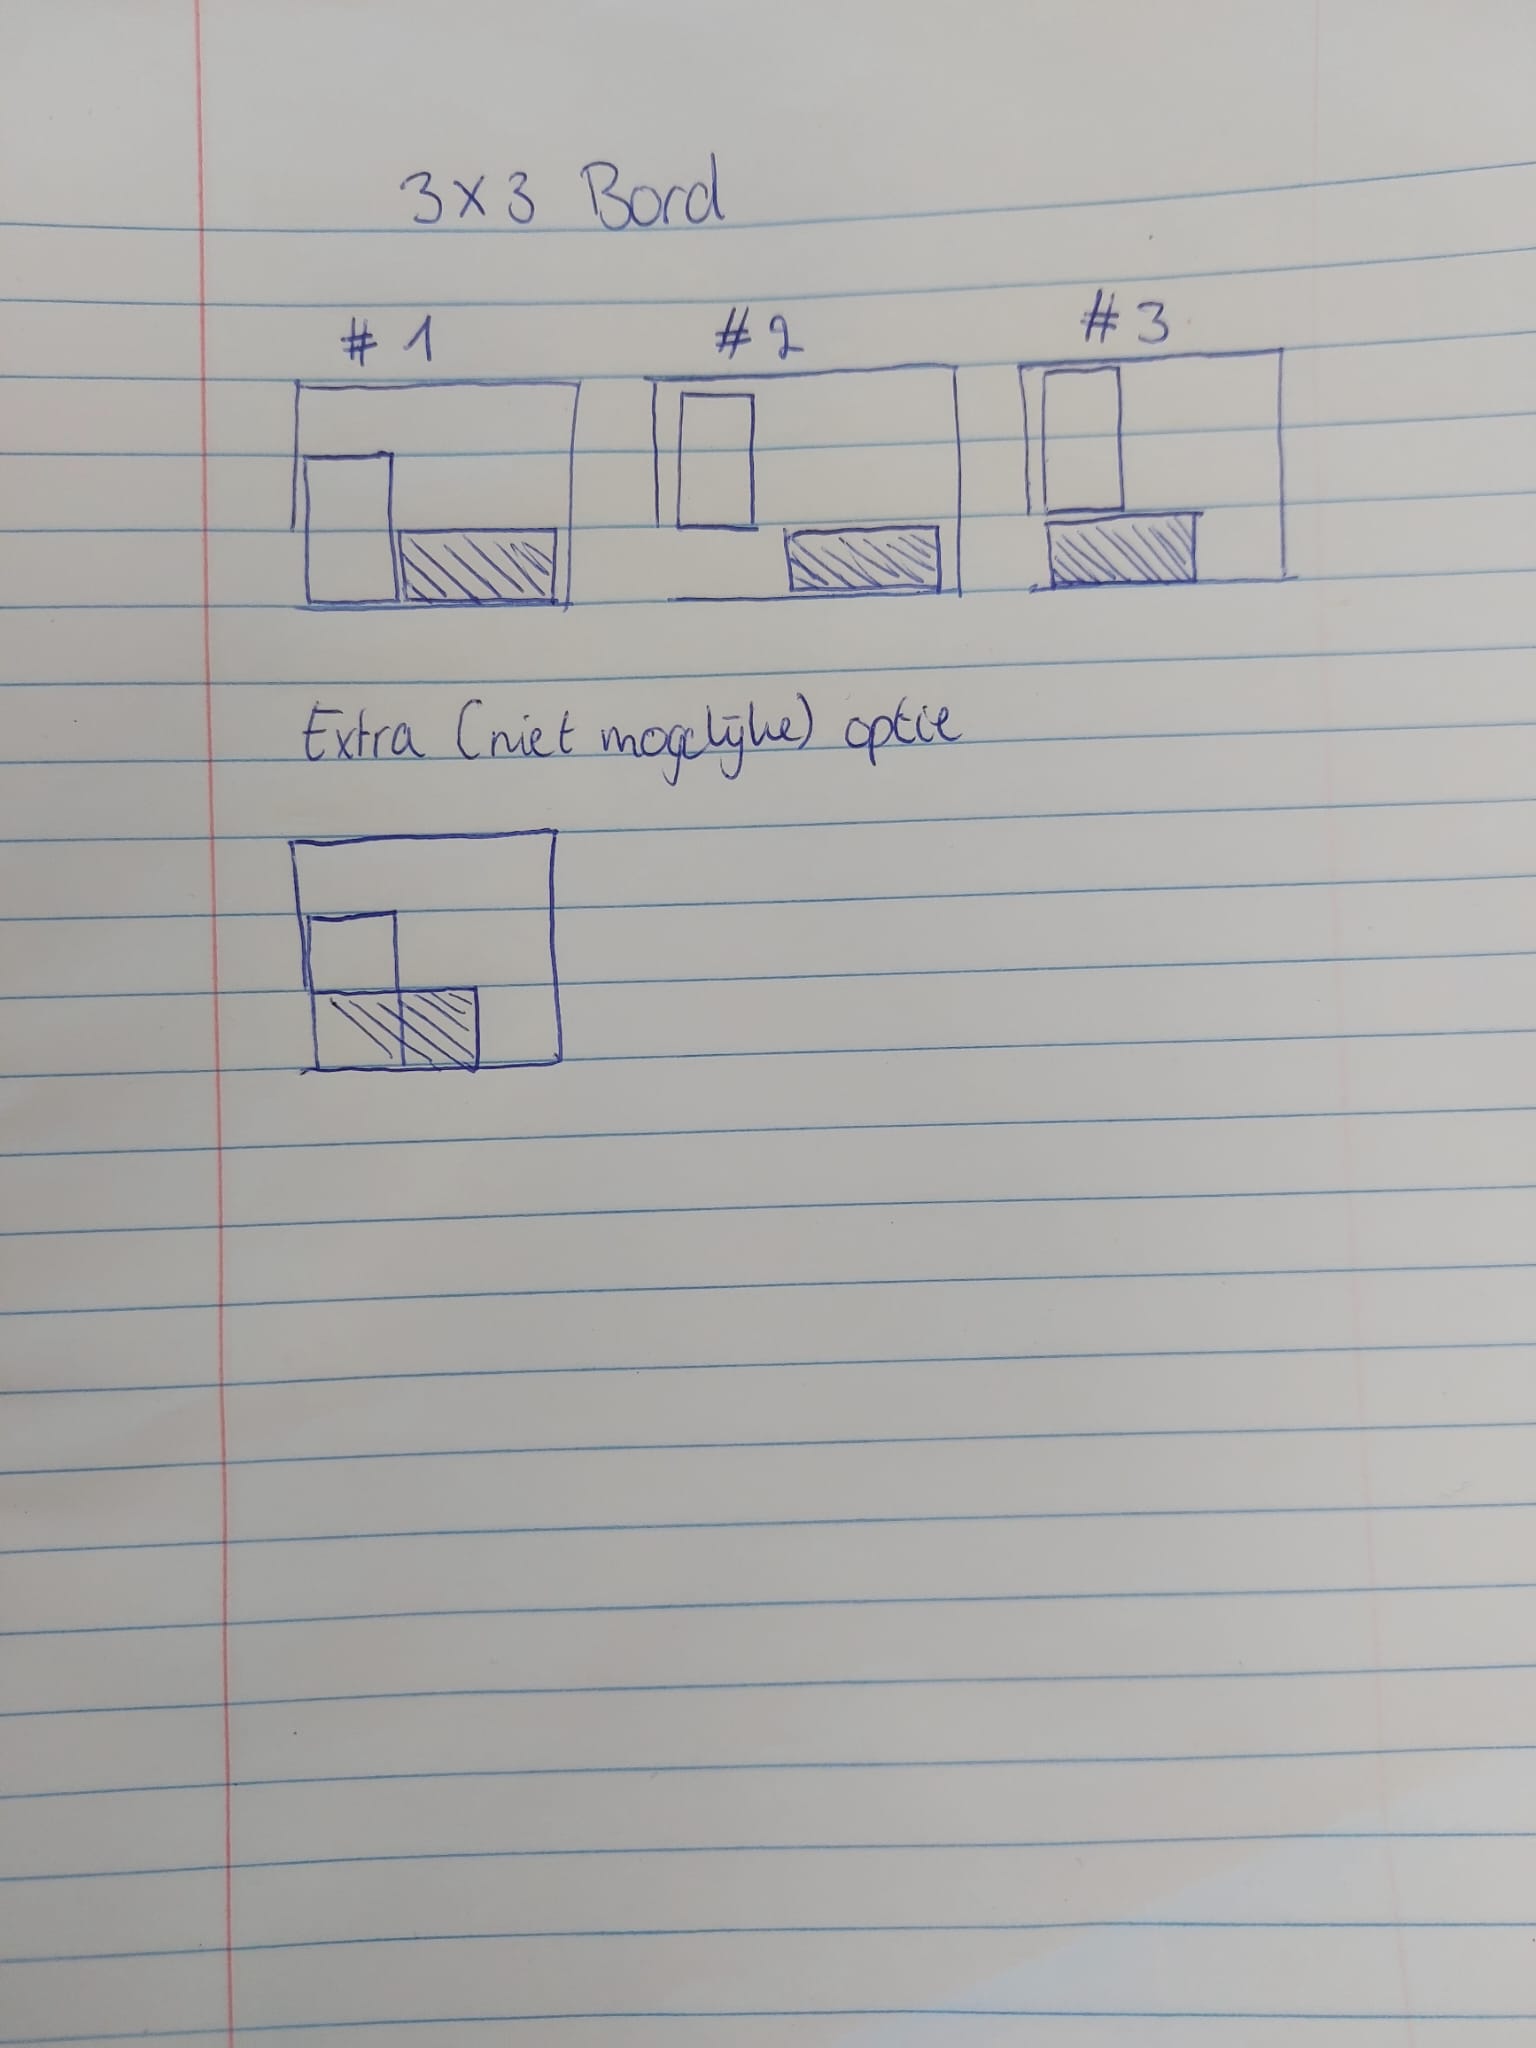 3x3 Bord
# 1 # 2 # 3
Extra (niet mogelijke) optie